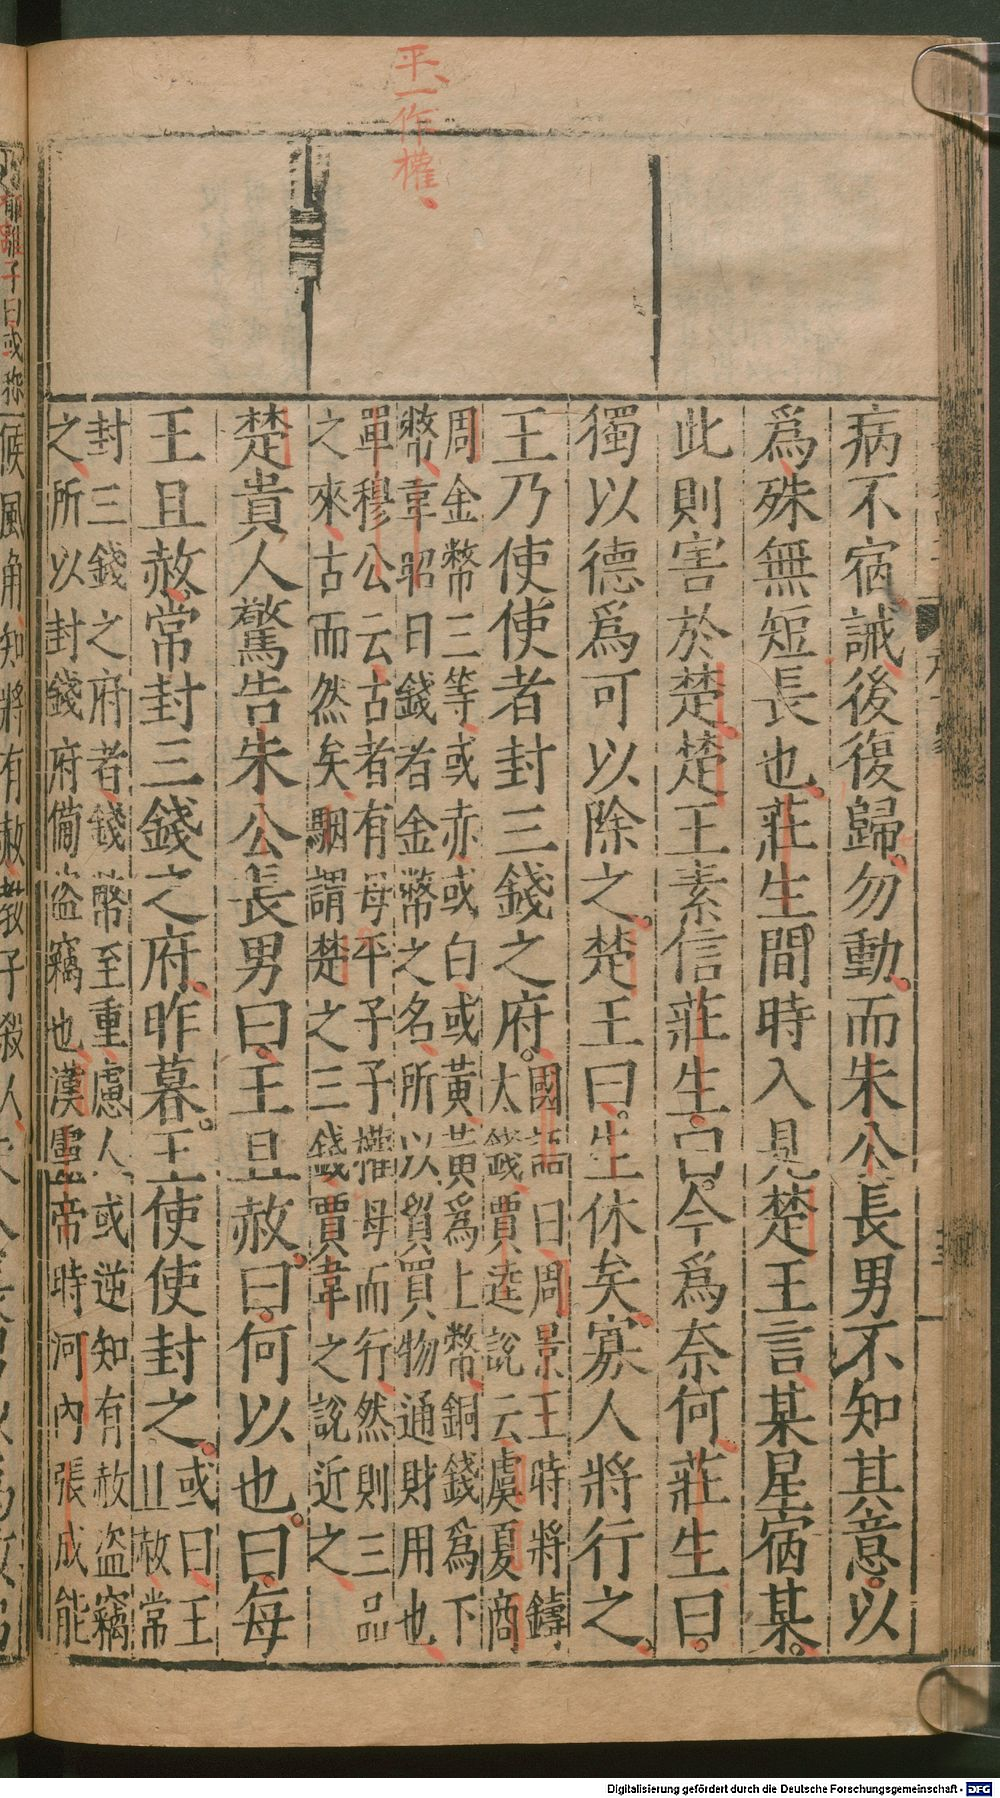 平、一作權、
病不宿誡後復歸勿動而朱公長男不知其意以
爲殊無短長也莊生間時入見楚王言某星宿某
此則害於楚楚王素信莊生曰今爲奈何莊生曰
獨以德爲可以除之楚王曰生休矣寡人將行之
王乃使使者封三錢之府國語曰周景王時將鑄
太錢賈逵說云虞夏商
周金幣三等或赤或白或黃黃爲上幣銅錢爲下
幣韋昭曰錢者金幣之名所以貿買物通財用也
單穆公云古者有母平子子權母而行然則三品
之來古而然矣駰謂楚之三錢賈韋之說近之
楚貴人驚告朱公長男曰王且赦曰何以也曰每
王且赦常封三錢之府昨暮王使使封之或曰王
且赦常
封三錢之府者錢幣至重慮人或逆知有赦盜竊
之所以封錢府備盜竊也漢靈帝時河內張成能
候風角知將有赦教子殺人
子曰或
Digitalisierung gefördert durch die Deutsche Forschungsgemeinschaft - DFG